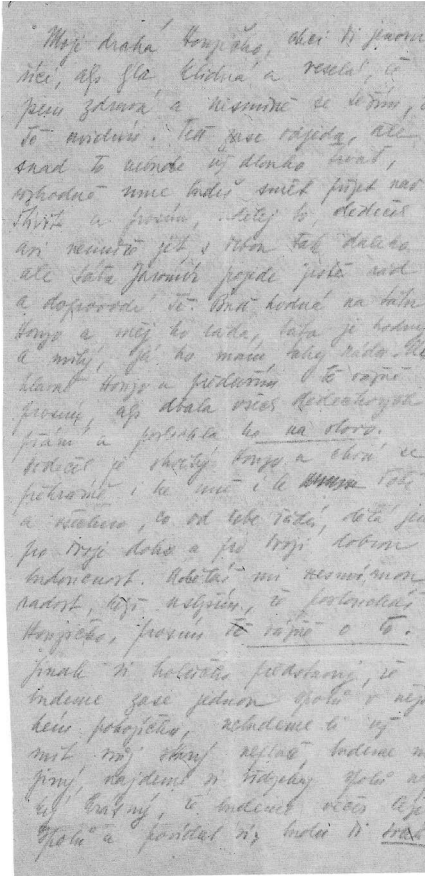 Moje drahá Honzičko, chci Ti jenom
říci, abys byla klidná a veselá, že
jsem zdravá a nesmírně se těším,
tě uvidím. Teď zase odjedu, ale
snad to nebude už dlouho trvat,
rozhodně mne budeš smět přijet nav
štívit a prosím, dělej to, dědeček
asi nemůže jet s tebou tak daleko
ale táta Jaromír pojede jistě rád
a doprovodí tě. Buď hodná na tátu
Honzo a měj ho ráda, táta je hodný
a milý, já ho mám taky ráda.
hlavně Honzo a především tě vážně
prosím, abys dbala všech dědečkových
přání a poslechla ho na slovo.
Dědeček je skvělý Honzo a chová se
překrásně i ke mně i k Tobě
a všechno, co od tebe žádá, dělá jen
pro tvoje dobro a pro tvoji dobrou
budoucnost. Uděláš mi nesmírnou
radost, když uslyším, že posloucháš
Honzičko, prosím tě vážně o to.
Jinak si holčičko představuj, že
budeme zase jednou spolu v něja
kém pokojíčku, nebudeme li už
mít svůj starý budeme m
jiný, najdeme si vždycky spolu
krásný, že budeme večer
spolu a povídat si, budu Ti